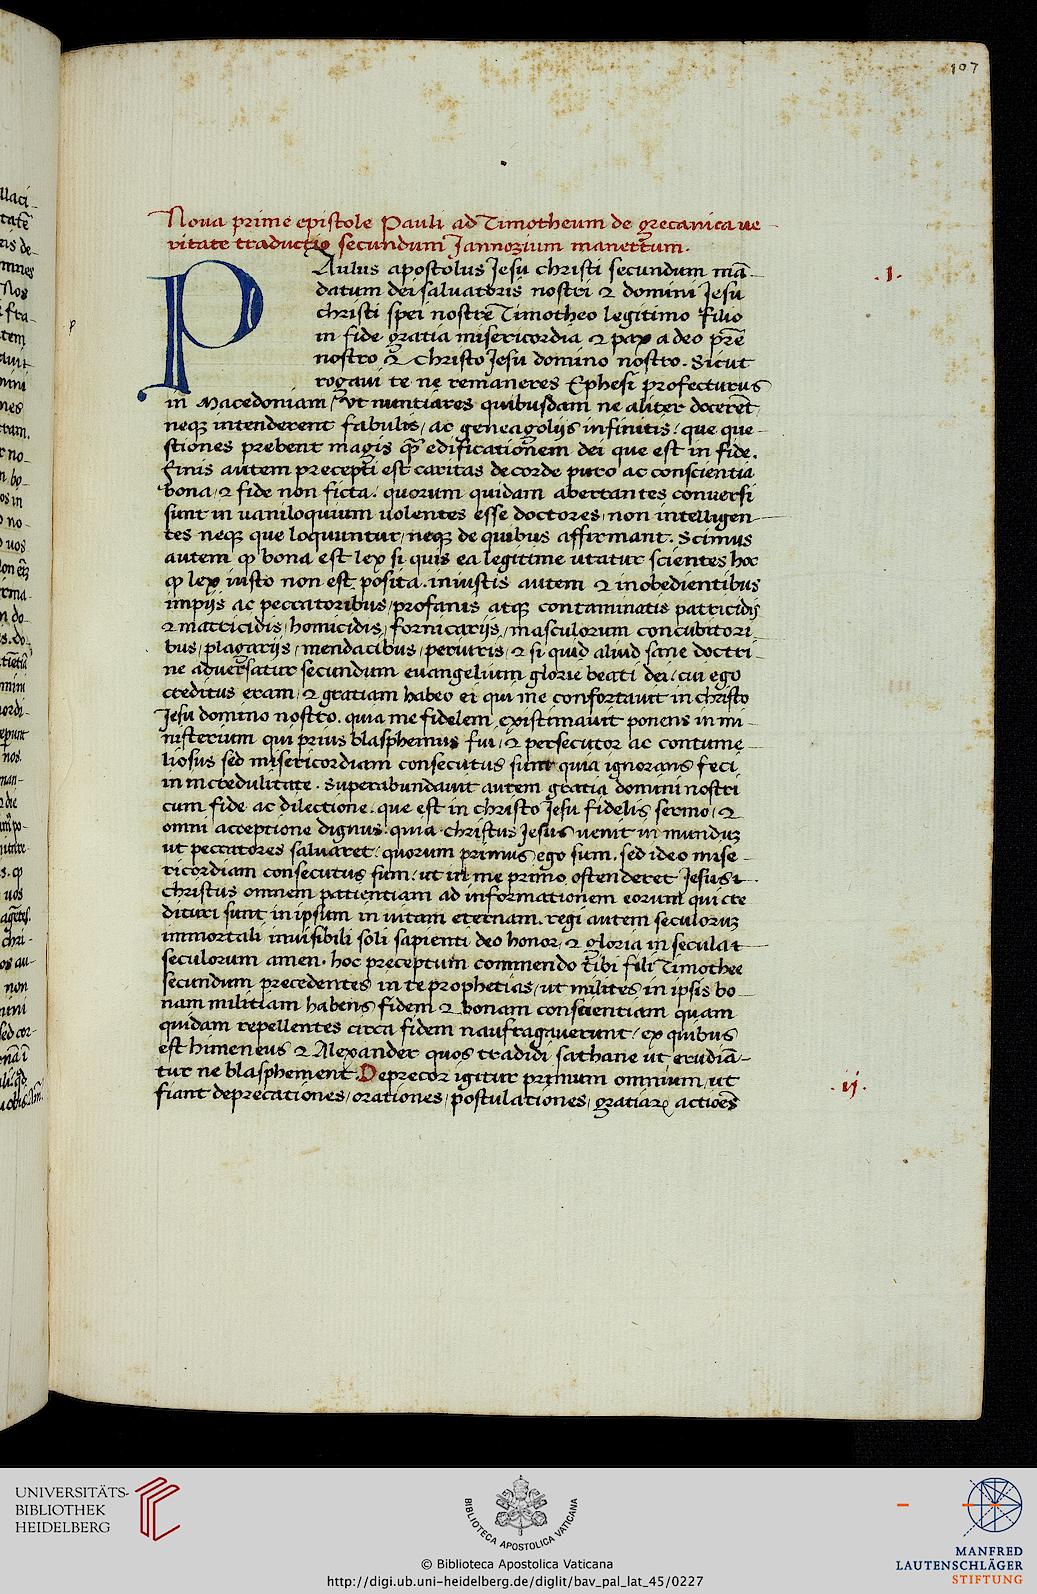 107
Noua prime epistole Pauli ad Timotheum de grecanica ue
ritate traductio secundum Jannozium manettum.
PAulus apostolus Jesu christi secundum mā
datum dei saluatoris nostri & domini Jesu
christi spei nostre Timotheo legitimo filio
in fide gratia misericordia & pax a deo pr̄e
nostro & Christo Jesu domino nostro. Sicut
rogaui te ne remaneres Ephesi profecturus
in Macedoniam / ut nuntiares quibusdam ne aliter docerēt
neqꝫ intenderent fabulis / ac geneagolijs infinitis: que que
stiones prebent magis qȝ edificationem dei que est in fide.
Finis autem precepti est caritas de corde puro ac conscientia
bona / & fide non ficta: quorum quidam aberrantes conuersi
sunt in uaniloquium uolentes esse doctores / non intelligen
tes neqꝫ que loquuntur / neqꝫ de quibus affirmant. Scimus
autem ꝙ bona est lex si quis ea legitime utatur scientes hoc
ꝙ lex iusto non est posita. iniustis autem & inobedientibus
impijs ac peccatoribus / profanis atqꝫ contaminatis patricidijs
& matricidis / homicidis / fornicarijs / masculorum concubitori
bus / plagarijs / mendacibus / periuris / & si quid aliud sane doctri
ne aduersatur secundum euangelium glorie beati dei / cui ego
creditus eram / & gratiam habeo ei qui me confortauit in christo
Jesu domino nostro. quia me fidelem existimauit ponens in mi
nisterium qui prius blasphemus fui / & persecutor ac contume
liosus sed misericordiam consecutus sum quia ignorans feci
in incredulitate. Superabundauit autem gratia domini nostri
cum fide ac dilectione. que est in christo Jesu fidelis sermo / &
omni acceptione dignus: quia christus Jesus uenit in munduꝫ
ut peccatores saluaret: quorum primus ego sum. sed ideo mise
ricordiam consecutus sum: ut in me primo ostenderet Jesus
christus omnem patientiam ad informationem eorum qui cre
dituri sunt in ipsum in uitam eternam. regi autem seculoruꝫ
immortali inuisibili soli sapienti deo honor / & gloria in secula
seculorum amen. hoc preceptum commendo tibi fili Timothee
secundum precedentes in te prophetias / ut milites in ipsis bo
nam militiam habens fidem & bonam conscientiam quam
quidam repellentes circa fidem naufragauerunt / ex quibus
est himeneus & Alexander quos tradidi sathane ut erudiā
tur ne blasphement. Deprecor igitur primum omnium / ut
fiant deprecationes / orationes / postulationes / gratiarꝝ actioēs
.I.
.ij.
UNIVERSITÄTS-
BIBLIOTHEK
HEIDELBERG
BIBLIOTECA APOSTOLICA VATICANA
© Biblioteca Apostolica Vaticana
http://digi.ub.uni-heidelberg.de/diglit/bav_pal_lat_45/0227
MANFRED
LAUTENSCHLÄGER
STIFTUNG